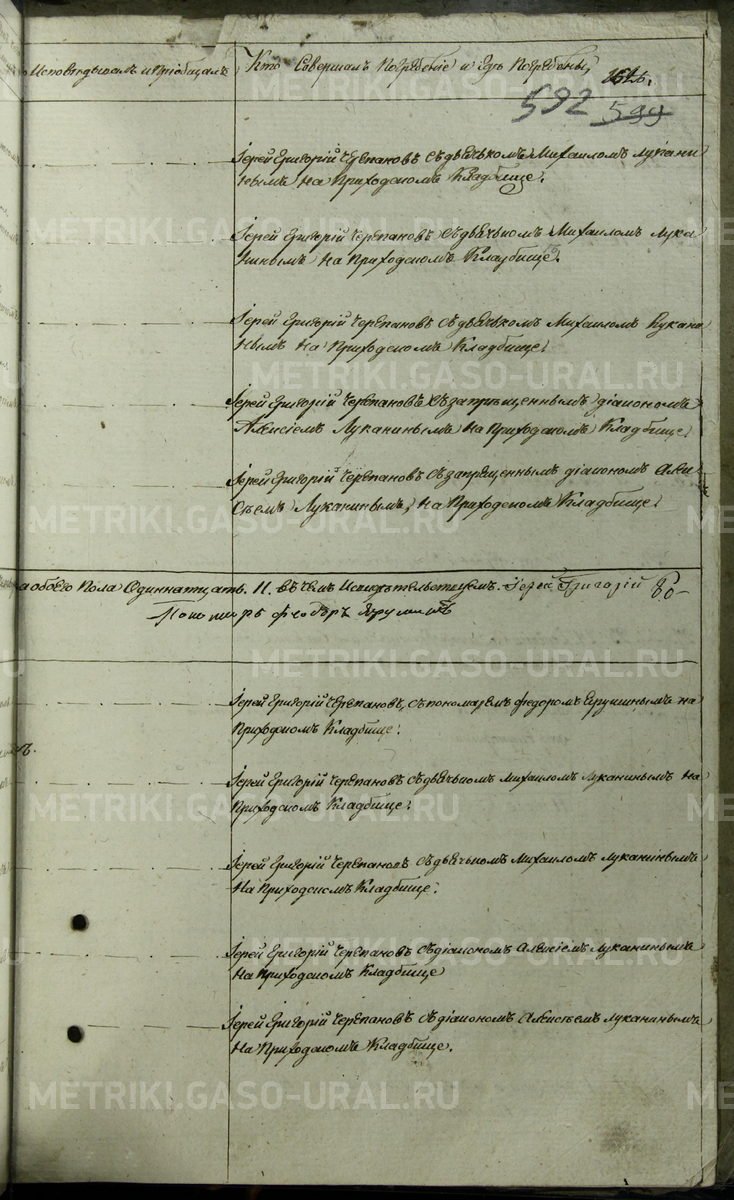 Исповѣдывалъ и Пріобщалъ
Кто Совершалъ Погребеніе и Гдѣ Погребены,
592 599
Іерей Григорій Черепановъ съ дьячькомъ Михаиломъ Лукани
нымъ на Приходскомъ Кладбище.
Іерей Григорій Черепановъ съ дьячькомъ Михаиломъ Лука
нинымъ на Приходскомъ Кладбище.
Іерей Григорій Черепановъ съ дьячькомъ Михаиломъ Лукани
нымъ на Приходскомъ Кладбище.
Іерей Григорій Черепановъ съ запрещеннымъ діакономъ
Алексіемъ Луканинымъ на Приходскомъ Кладбище.
Іерей Григорій Черепановъ съ запрещеннымъ діакономъ Алек
сіемъ Луканинымъ, на Приходскомъ Кладбище.
обоего Пола Одиннатцать. 11. въ чемъ Іерей Григорій
Пономарь Феодоръ
Іерей Григорій Черепановъ, съ пономаремъ Федоромъ на
Приходскомъ Кладбище.
Іерей Григорій Черепановъ съ дьячькомъ Михаиломъ Луканинымъ на
Приходскомъ Кладбище.
Іерей Григорій Черепановъ съ дьячькомъ Михаиломъ Луканинымъ
на Приходскомъ Кладбище.
Іерей Григорій Черепановъ съ діакономъ Алексіемъ Луканинымъ
на Приходскомъ Кладбище
Іерей Григорій Черепановъ съ діакономъ Алексіемъ Луканинымъ
на Приходскомъ Кладбище.
METRIKI.GASO-URAL.RU